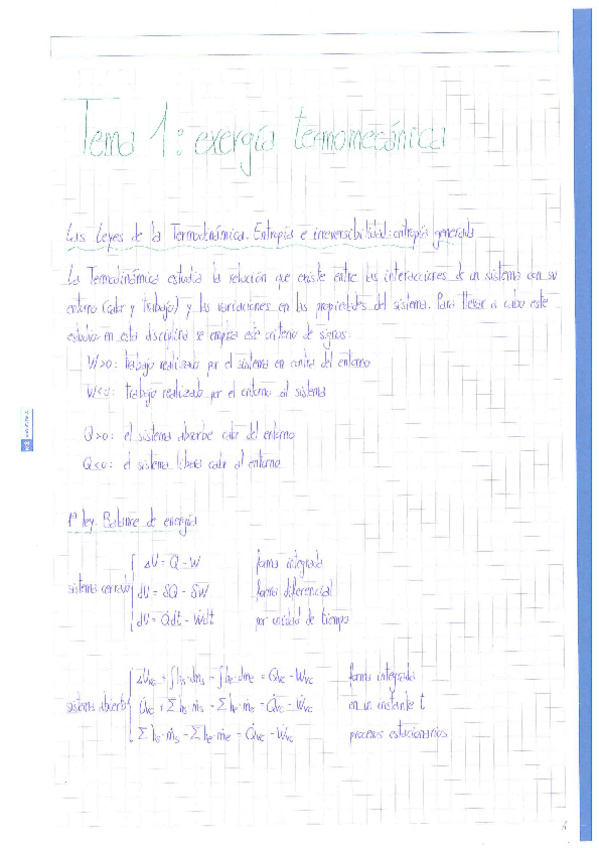 Tema 1: exergía termomecánica
Las Leyes de la Termodinámica. Entropía e irreversibilidad: entropía generada
La Termodinámica estudia la relación que existe entre las interacciones de un sistema con su
entorno (calor y trabajo) y las variaciones en las propiedades del sistema. Para llevar a cabo este
estudio en esta disciplina se emplea este criterio de signos:
W>0: trabajo realizado por el sistema en contra del entorno
W<0: trabajo realizado por el entorno al sistema
Q>0: el sistema absorbe calor del entorno
Q<0: el sistema libera calor al entorno
1ª ley. Balance de energía
ΔU = Q - W forma integrada
sistema cerrado dU = δQ - δW forma diferencial
dU = Q̇dt - Ẇdt por unidad de tiempo
ΔUvc + ∫hs·dms - ∫he·dme = Qvc - Wvc forma integrada
sistema abierto U̇vc + Σhs·ṁs - Σhe·ṁe = Q̇vc - Ẇvc en un instante t
Σhs·ṁs - Σhe·ṁe = Q̇vc - Ẇvc procesos estacionarios